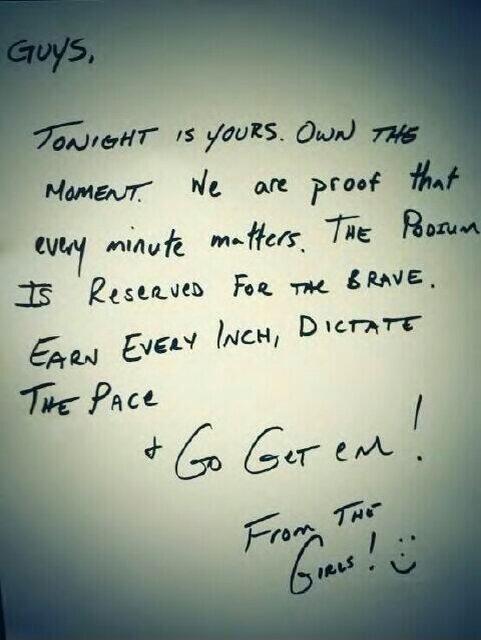 Guys,
Tonight is yours. Own the
moment. We are proof that
every minute matters. The Podium
Is Reserved for the Brave.
Earn Every Inch, Dictate
The Pace
+ Go Get em!
From The
Girls! :)